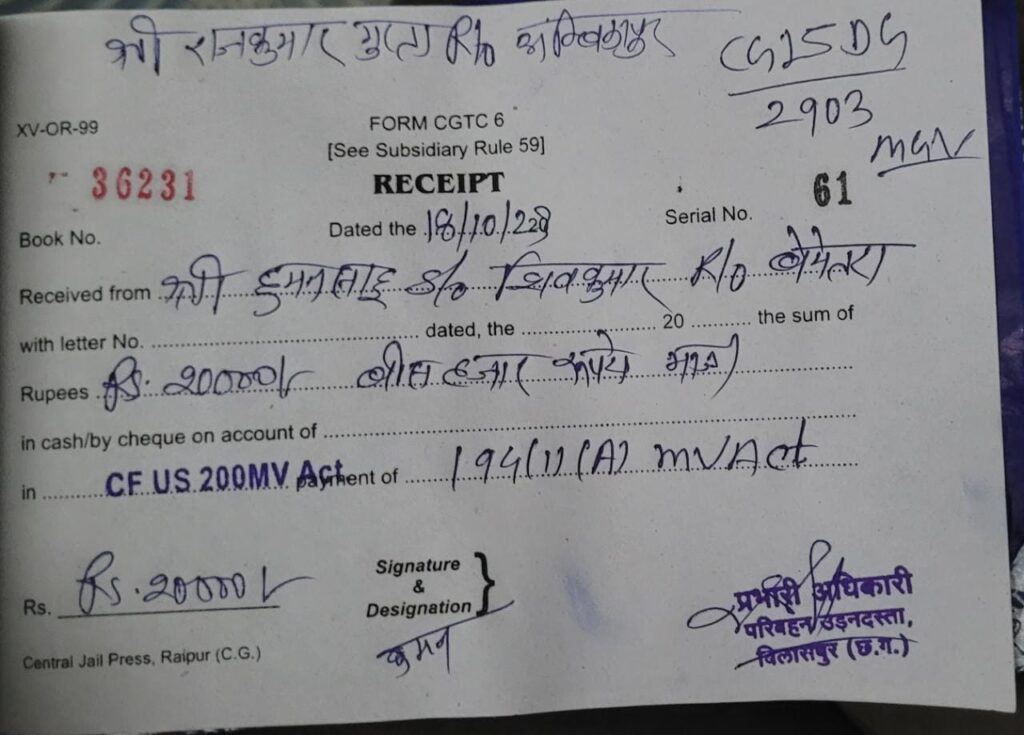 श्री राजकुमार गुप्ता R/o अम्बिकापुर
CG15DG
2903
MGV
XV-OR-99
FORM CGTC 6
[See Subsidiary Rule 59]
36231
RECEIPT
61
Book No.
Dated the 18/10/22
Serial No.
Received from श्री हुमन साहू S/o शिवकुमार R/o बेमेतरा
with letter No. .......... dated, the .......... 20 .......... the sum of
Rupees Rs. 20000/- बीस हजार रूपये मात्र
in cash/by cheque on account of ..........
in .......... CF US 200MV Act payment of .......... 194(1)(A) MV Act
Rs. Rs. 20000/-
Signature
&
Designation
प्रभारी अधिकारी
परिवहन उड़नदस्ता,
बिलासपुर (छ.ग.)
Central Jail Press, Raipur (C.G.)